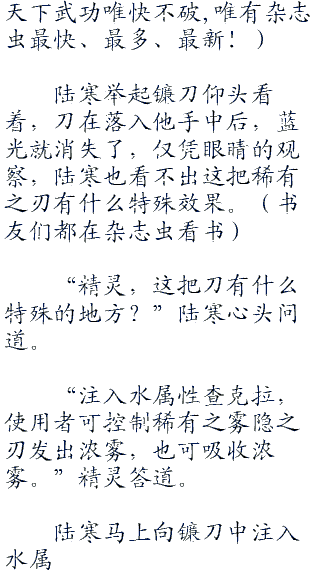 天下武功唯快不破,唯有杂志
虫最快、最多、最新！）
陆寒举起镰刀仰头看
着，刀在落入他手中后，蓝
光就消失了，仅凭眼睛的观
察，陆寒也看不出这把稀有
之刃有什么特殊效果。（书
友们都在杂志虫看书）
“精灵，这把刀有什么
特殊的地方？”陆寒心头问
道。
“注入水属性查克拉，
使用者可控制稀有之雾隐之
刃发出浓雾，也可吸收浓
雾。”精灵答道。
陆寒马上向镰刀中注入
水属